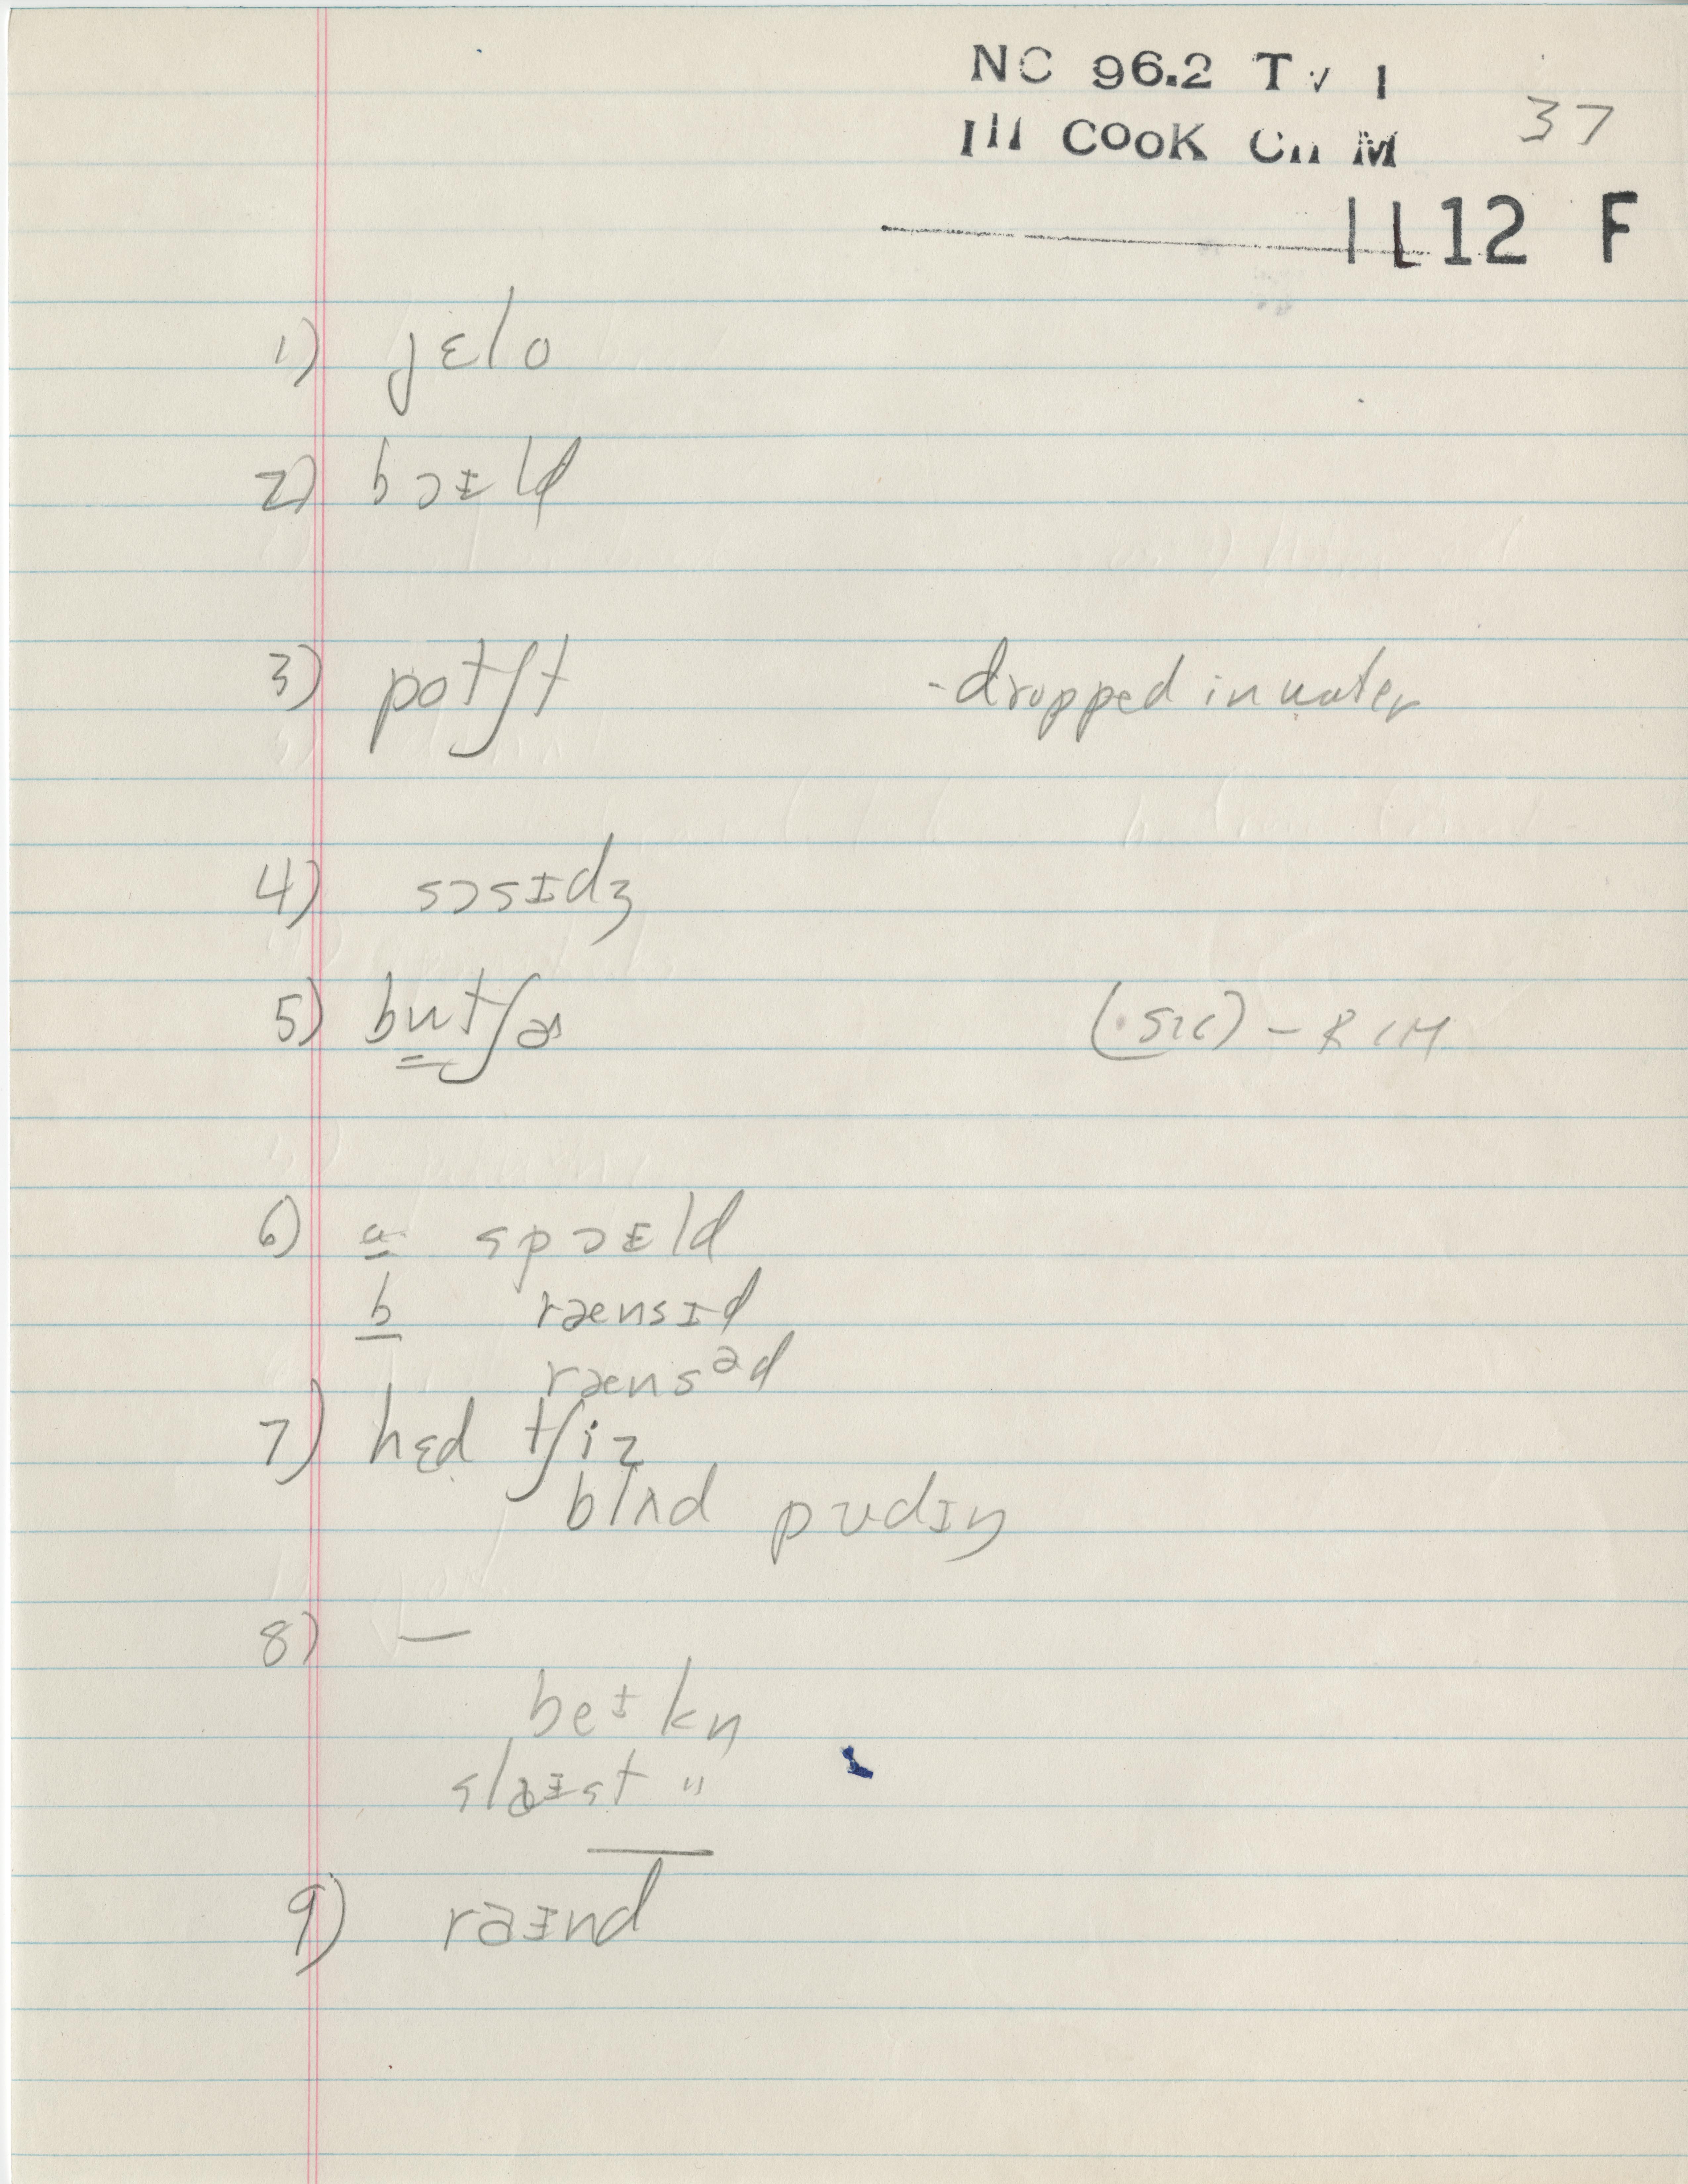 NC 96.2 T v 1
Ill COOK Ch M 37
IL12 F
1) jɛlo
2) bɔɪld
3) potʃt -dropped in water
4) sɔsɪdʒ
5) butʃɚ (sic) - RIM
6) a spɔɪld
b rænsɪd
rænsəd
7) hɛd tʃiz
blʌd pudɪŋ
8) —
beɪkn
slaɪst "
9) raɪnd